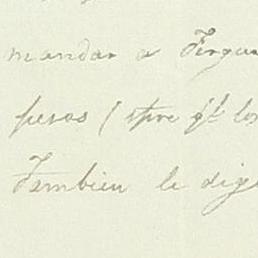 mandar a Fergus
pesos ( spre qe los
Tambien le dige